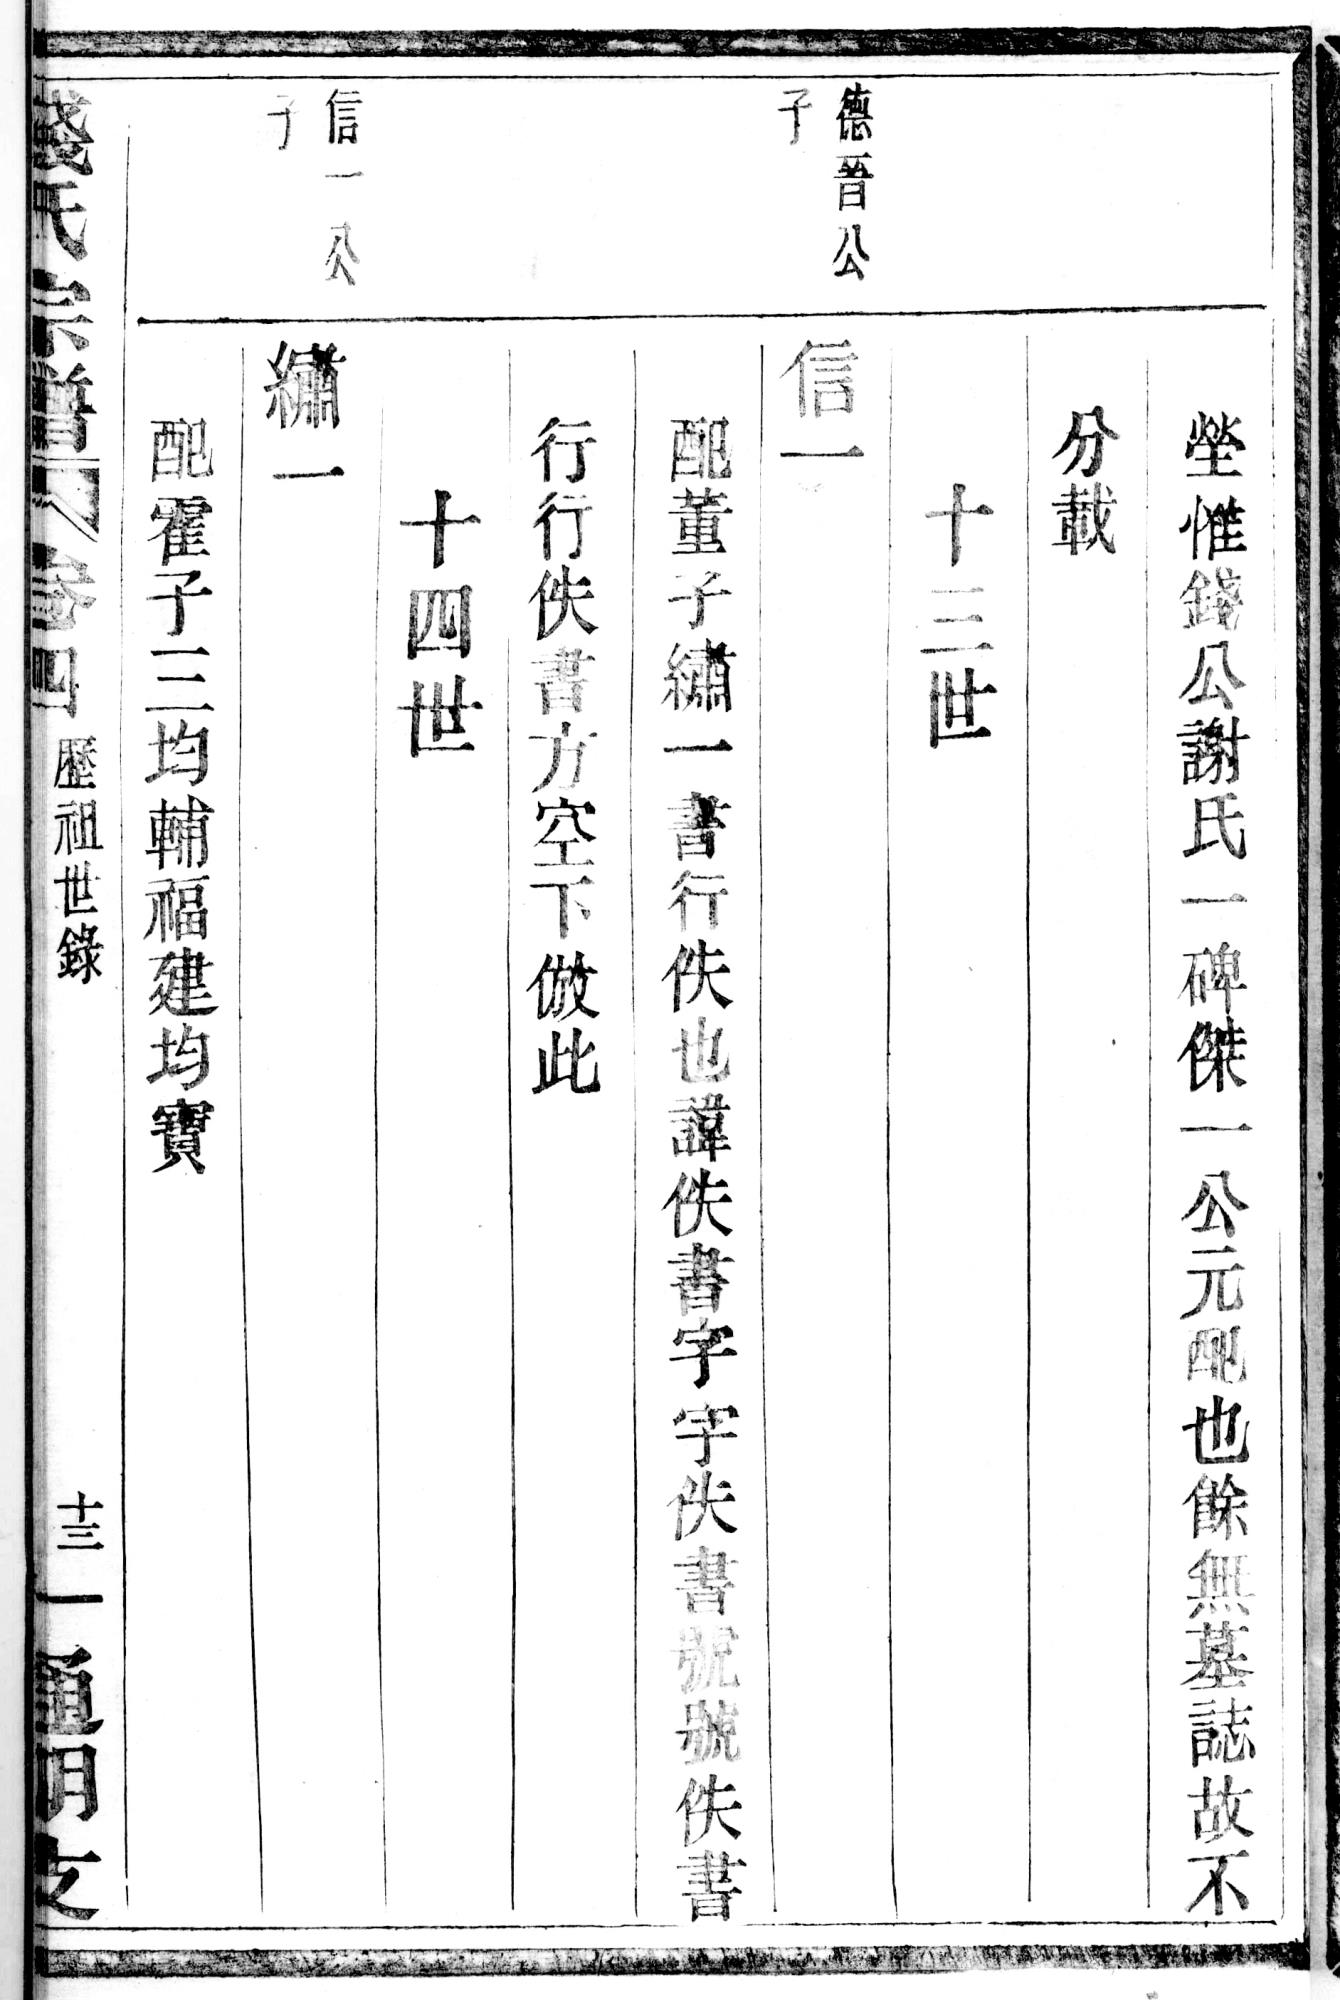 塋惟錢公謝氏一碑傑一公元配也餘無墓誌故不
分載
十三世
德晉公
子
信一
配董子繡一書行佚也諱佚書字字佚書號號佚書
行行佚書方空下倣此
十四世
信一公
子
繡一
配霍子三均輔福建均寶
錢氏宗譜
卷四
歷祖世錄
十三
通明支